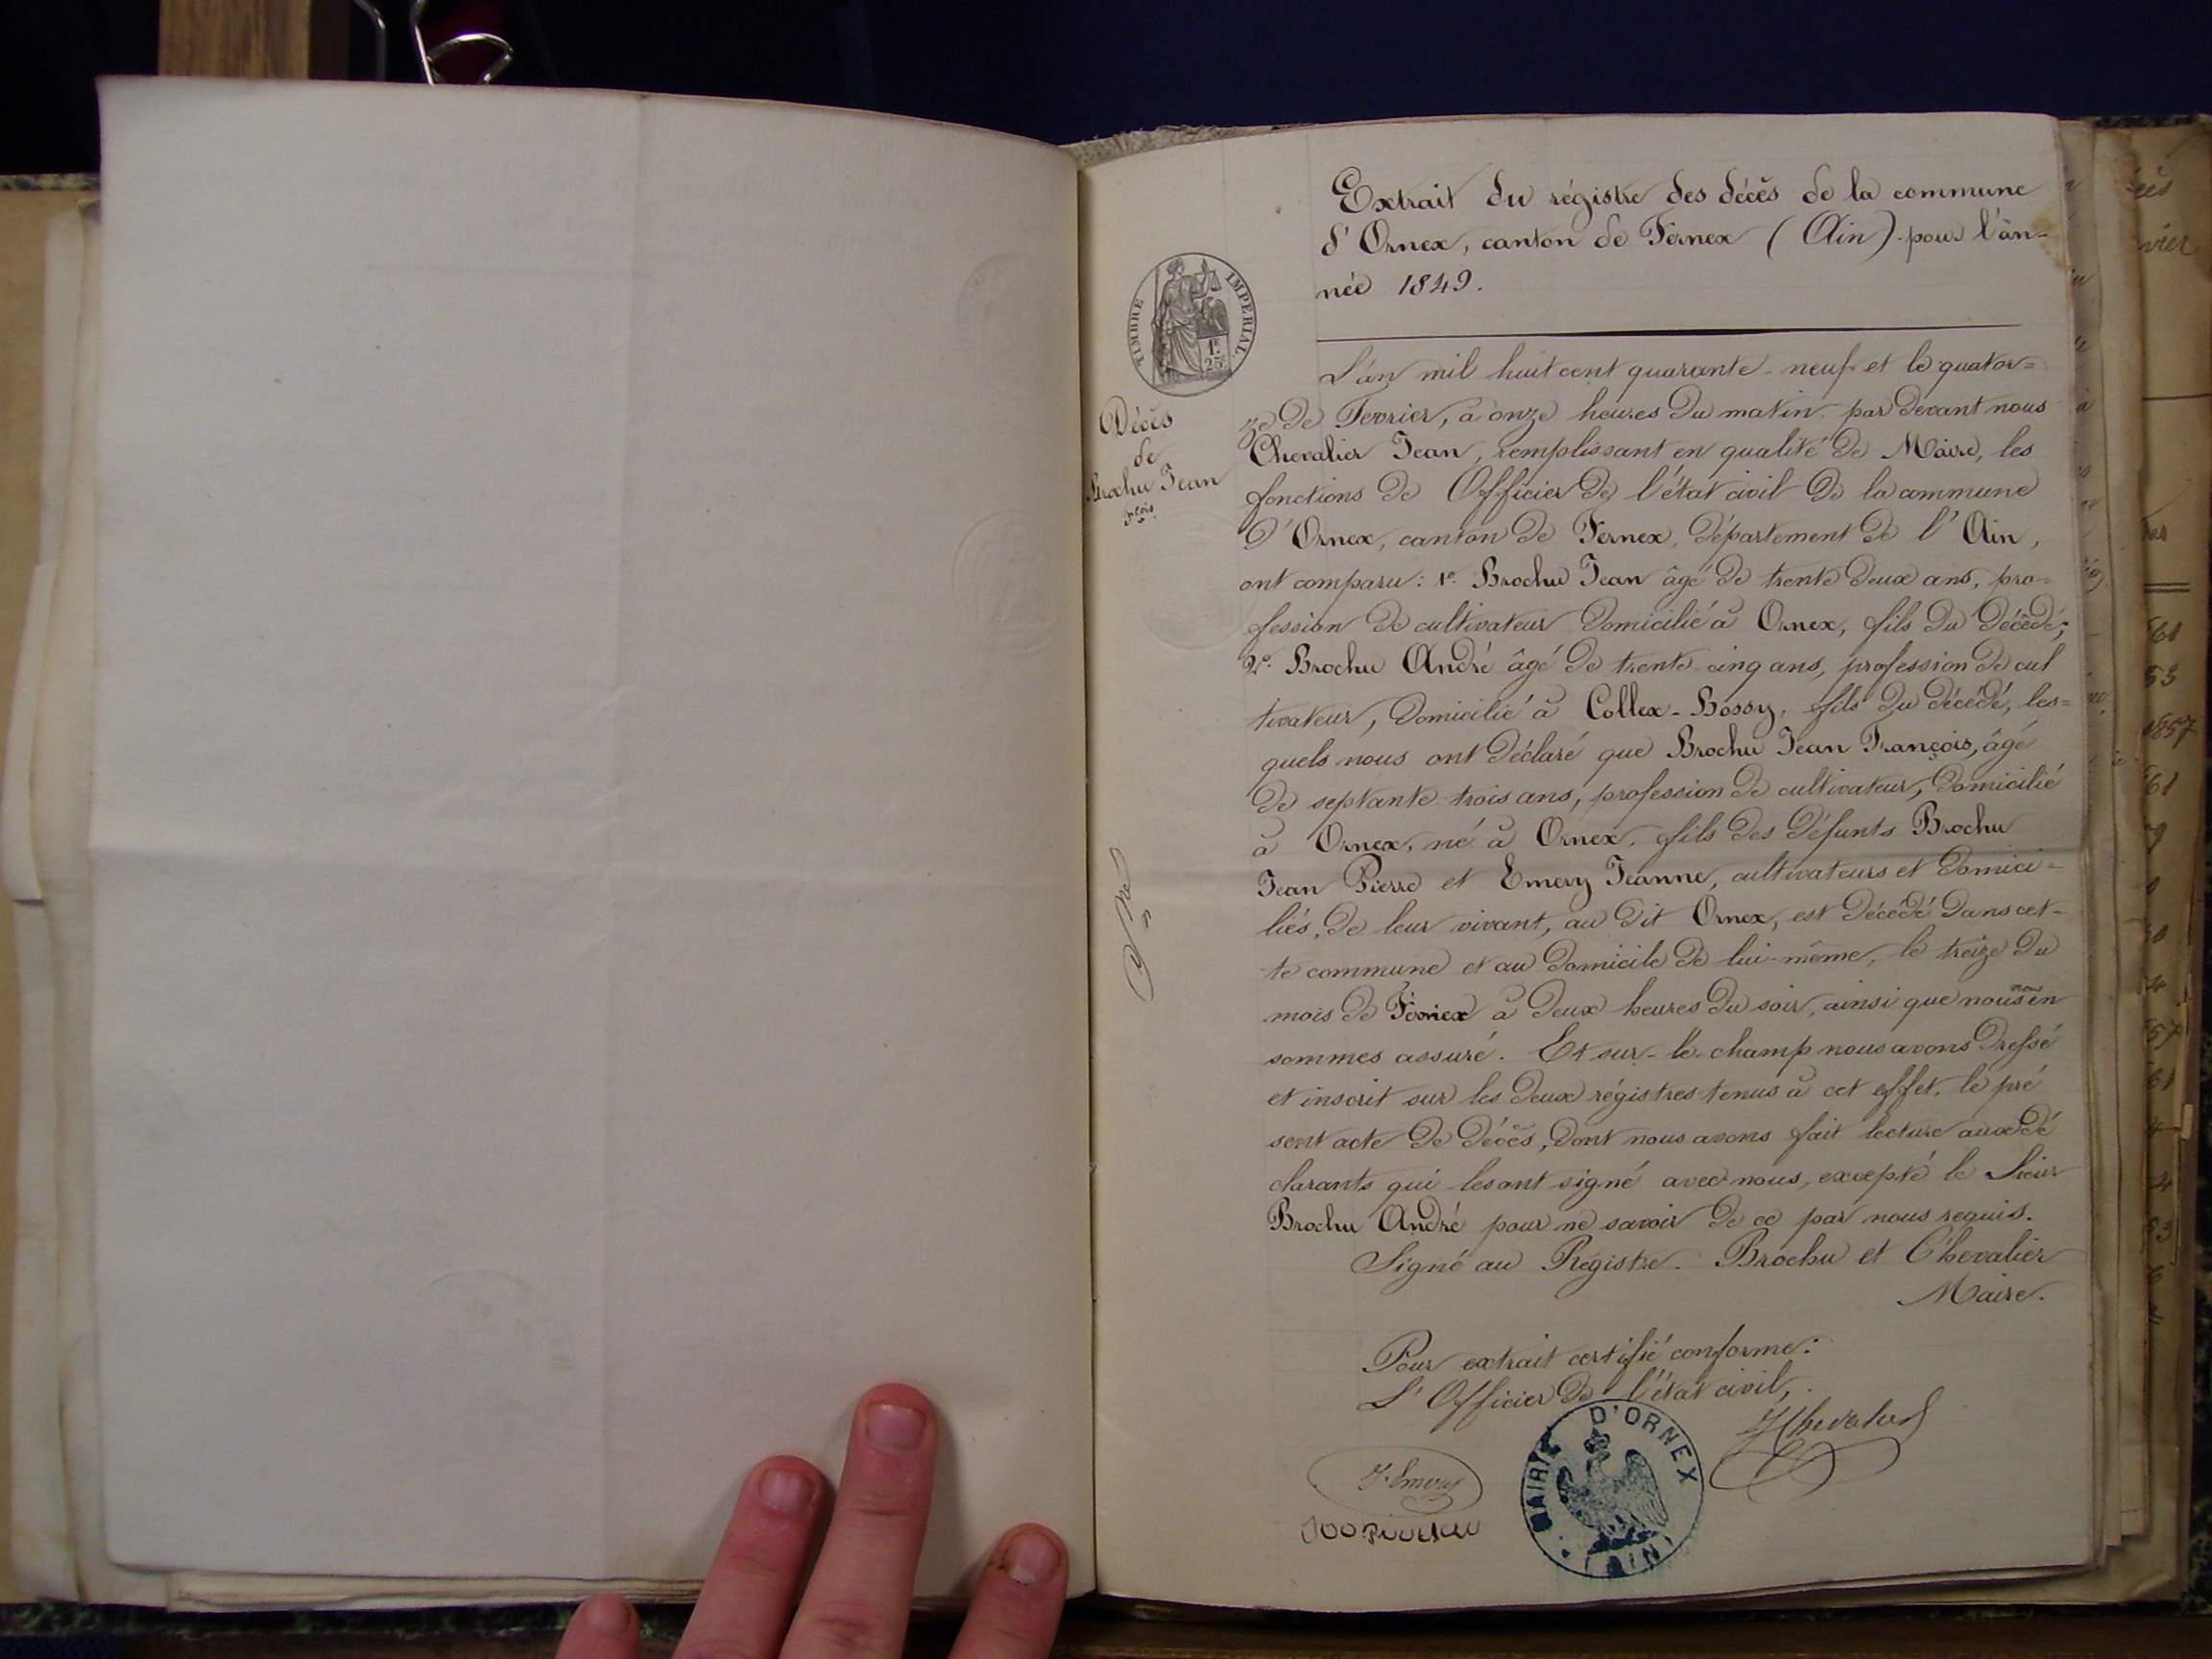 Extrait du régistre des décès de la commune
d'Ornex, canton de Fernex (Ain) pour l'an-
née 1849.
TIMBRE IMPERIAL
1F.
25c
Décès
de
Brochu Jean
fçois
L'an mil huit cent quarante-neuf et le quator=
ze de Fevrier, à onze heures du matin par devant nous
Chevalier Jean, remplissant en qualité de Maire, les
fonctions de Officier de l'état civil de la commune
d'Ornex, canton de Fernex, département de l'Ain,
ont comparu: 1º. Brochu Jean âgé de trente deux ans, pro-
fession de cultivateur domicilié à Ornex, fils du décédé;
2º. Brochu André âgé de trente cinq ans, profession de cul
tivateur, domicilié à Collex-Bossy, fils du décédé, les=
quels nous ont déclaré que Brochu Jean François, âgé
de septante trois ans, profession de cultivateur, domicilié
à Ornex, né à Ornex, fils des défunts Brochu
Jean Pierre et Emery Jeanne, cultivateurs et domici=
liés, de leur vivant, au dit Ornex, est décédé dans cet-
te commune et au domicile de lui-même, le treize du
mois de Février à deux heures du soir, ainsi que nous nous en
sommes assuré. Et sur-le-champ nous avons dressé
et inscrit sur les deux régistres tenus à cet effet, le pré
sent acte de décès, dont nous avons fait lecture aux dé
clarants qui les ont signé avec nous, excepté le Sieur
Brochu André pour ne savoir de ce par nous requis.
Signé au Régistre. Brochu et Chevalier
Maire.
Pour extrait certifié conforme:
L'Officier de l'état civil,
J Chevalier
J. Emery
MAIRIE D'ORNEX
(AIN)